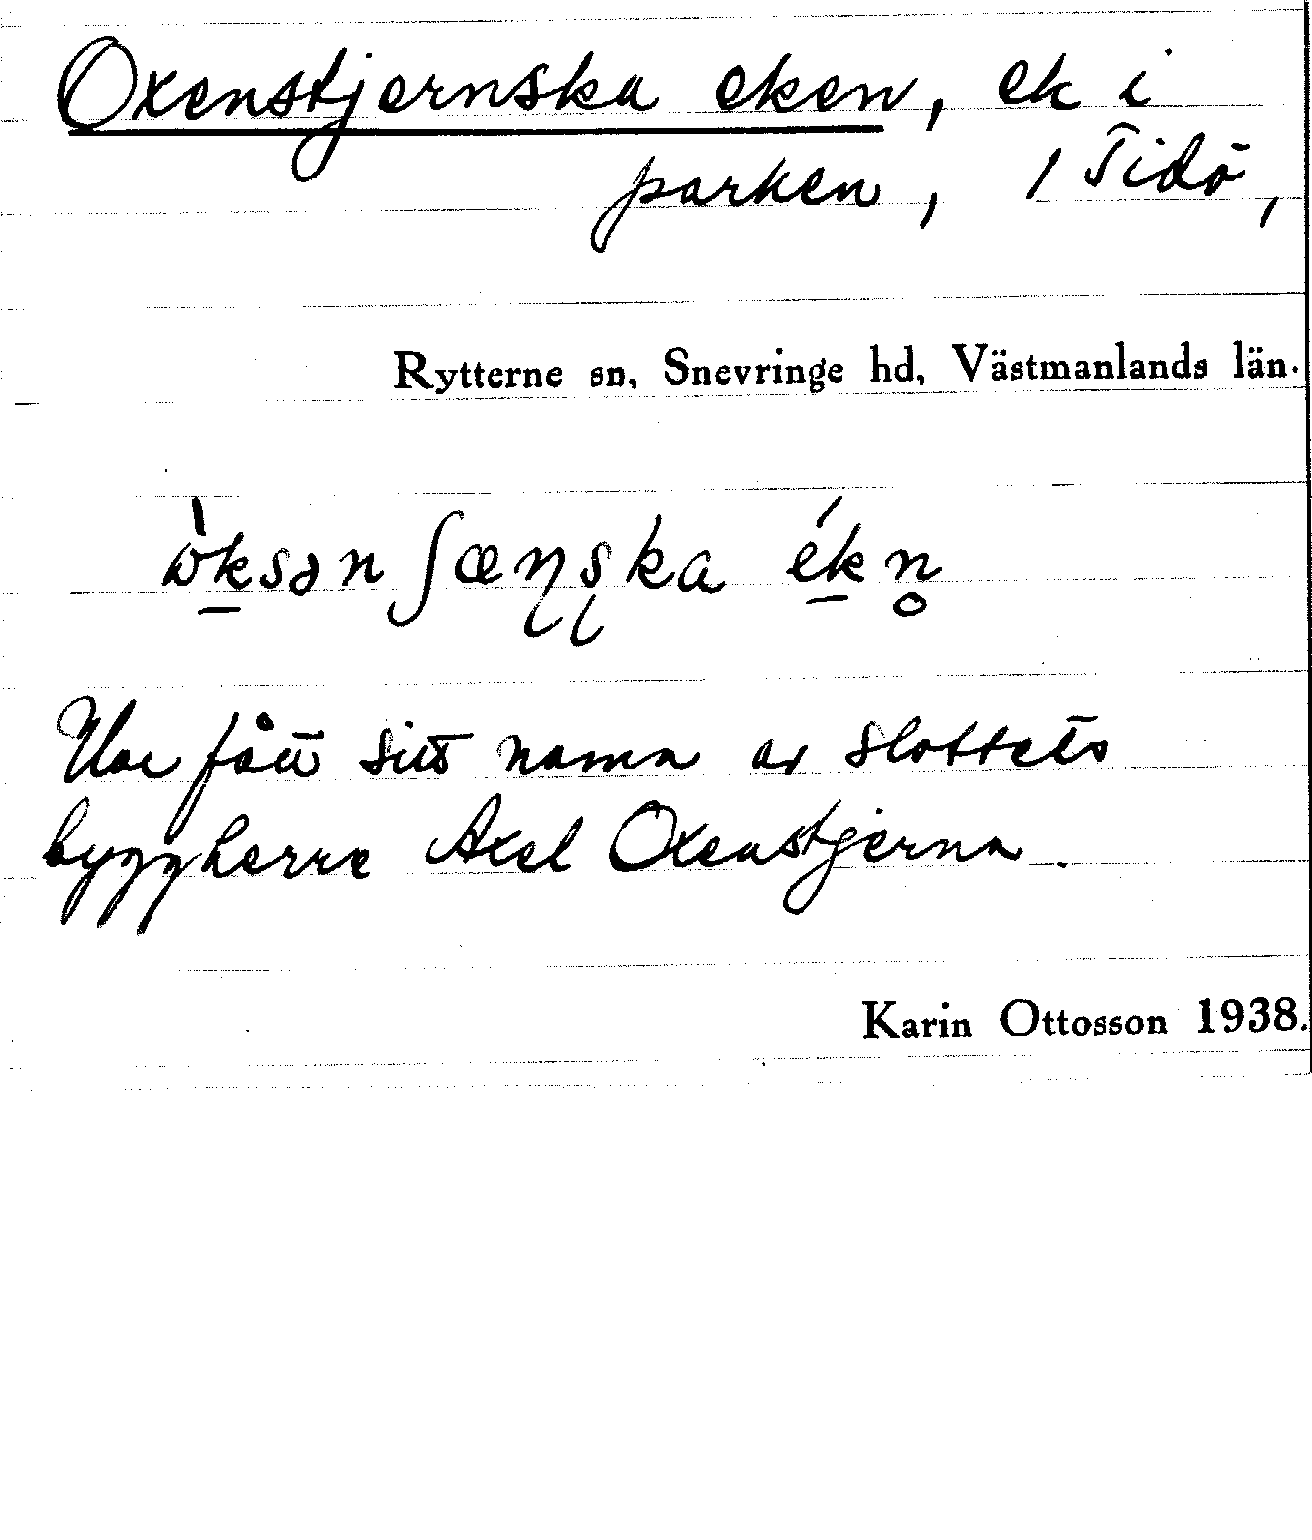 Oxenstjernska eken, ek i
parken, 1 Tidö,
Rytterne sn, Snevringe hd, Västmanlands län.
ò̱ksən ʃæɳʂka é̱kn̥
Har fått sitt namn av slottets
byggherre Axel Oxenstjerna.
Karin Ottosson 1938.